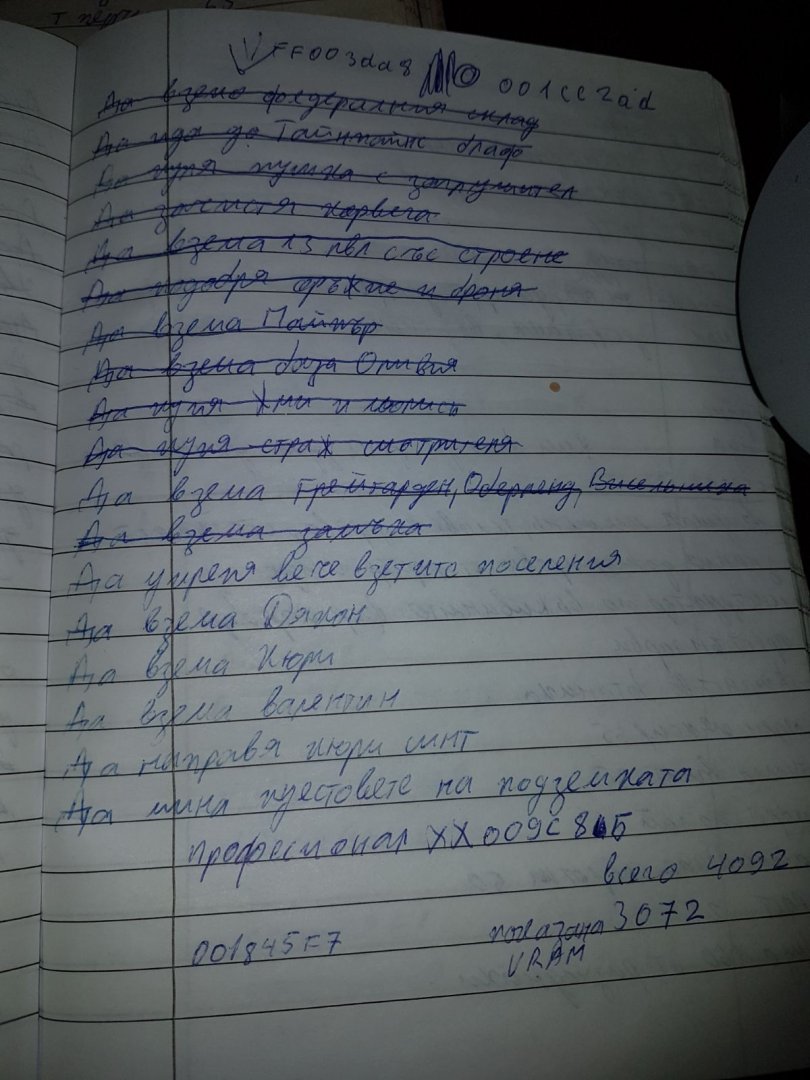 FF003da8 001CC2ad
Да взема федералния склад
Да ида до Тайнпайн блаф
Да купя пушка с заглушител
Да зачистя корвега
Да взема 13 пвл със строене
Да подобря оръжие и броня
Да взема Пайпър
Да взема база Оливия
Да купя Хми и
Да купя страж смотрителя
Да взема Грейгардън, Оберленд, Висельника
Да взема замъка
Да укрепя вече взетите поселения
Да взема Дякон
Да взема Кюри
Да взема валентин
Да направя кюри синт
Да мина куестовете на подземката
професионал XX009C8Б
всего 4092
001845F7 показана 3072
VRAM